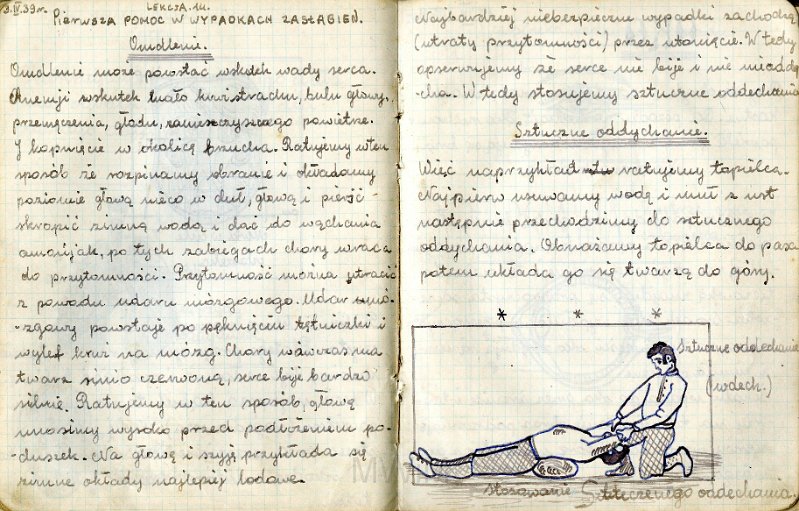 3.IV.39r.
LEKCJA.14.
PIERWSZA POMOC W WYPADKACH ZASŁABIEŃ.
Omdlenie.
Omdlenie może powstać wskutek wady serca.
Anemji wskutek mało krwi strachu, bulu głowy,
przemęczenia, głodu, powietrze.
I kopnięcie w okolicę brzucha. Ratujemy w ten
sposób że rozpinamy ubranie i układamy
poziomie głową nieco w duł, głową i pierść
skropić zimną wodą i dać do wąchania
amonjak, po tych zabiegach chory wraca
do przytomności. Przytomność można utracić
z powodu udaru mózgowego. Udar mó-
-zgowy powstaje po pęknięciu tętniczki i
wylef krwi na mózg. Chory wówczas ma
twarz sinio czerwoną, serce bije bardzo
silnie. Ratujemy w ten sposób, głowę
unosimy wysoko przed podłożeniem po-
-duszek. Na głowę i szyję przykłada się
zimne okłady najlepiej lodowe.
Najbardziej niebezpieczne wypadki zachodzą
(utraty przytomności) przez utonięcie. W tedy
opserwujemy że serce nie bije i nie
-cha. W tedy stosujemy sztuczne oddechanie
Sztuczne oddychanie.
Więć naprzykład ratujemy topielca.
Najpierw usuwamy wodę i muł z ust
następnie przechodzimy do sztucznego
oddychania. Obnażamy topielca do pasa
potem układa go się twarzą do góry.
* * *
Sztuczne oddechanie
(wdech.)
stosowanie Sztucznego oddechania.